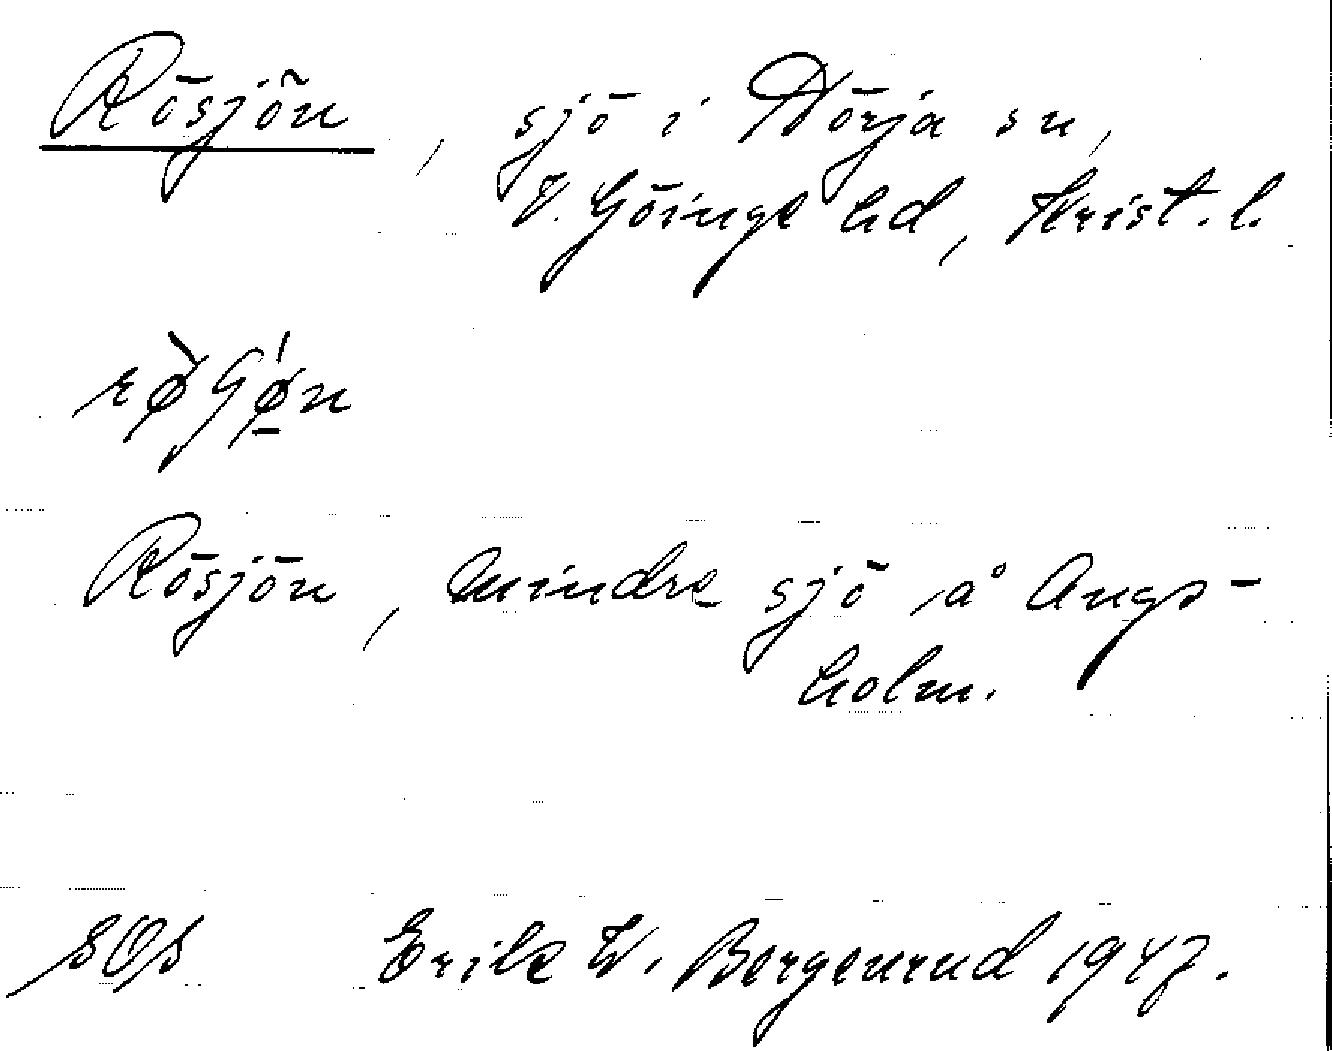 Rösjön, sjö i Nörja sn,
V. Göinge hd, Krist. l.
rø̀ʃǿ̱n
Rösjön, mindre sjö å Ängs-
holm.
SOS Erik W. Bergenrud 1947.